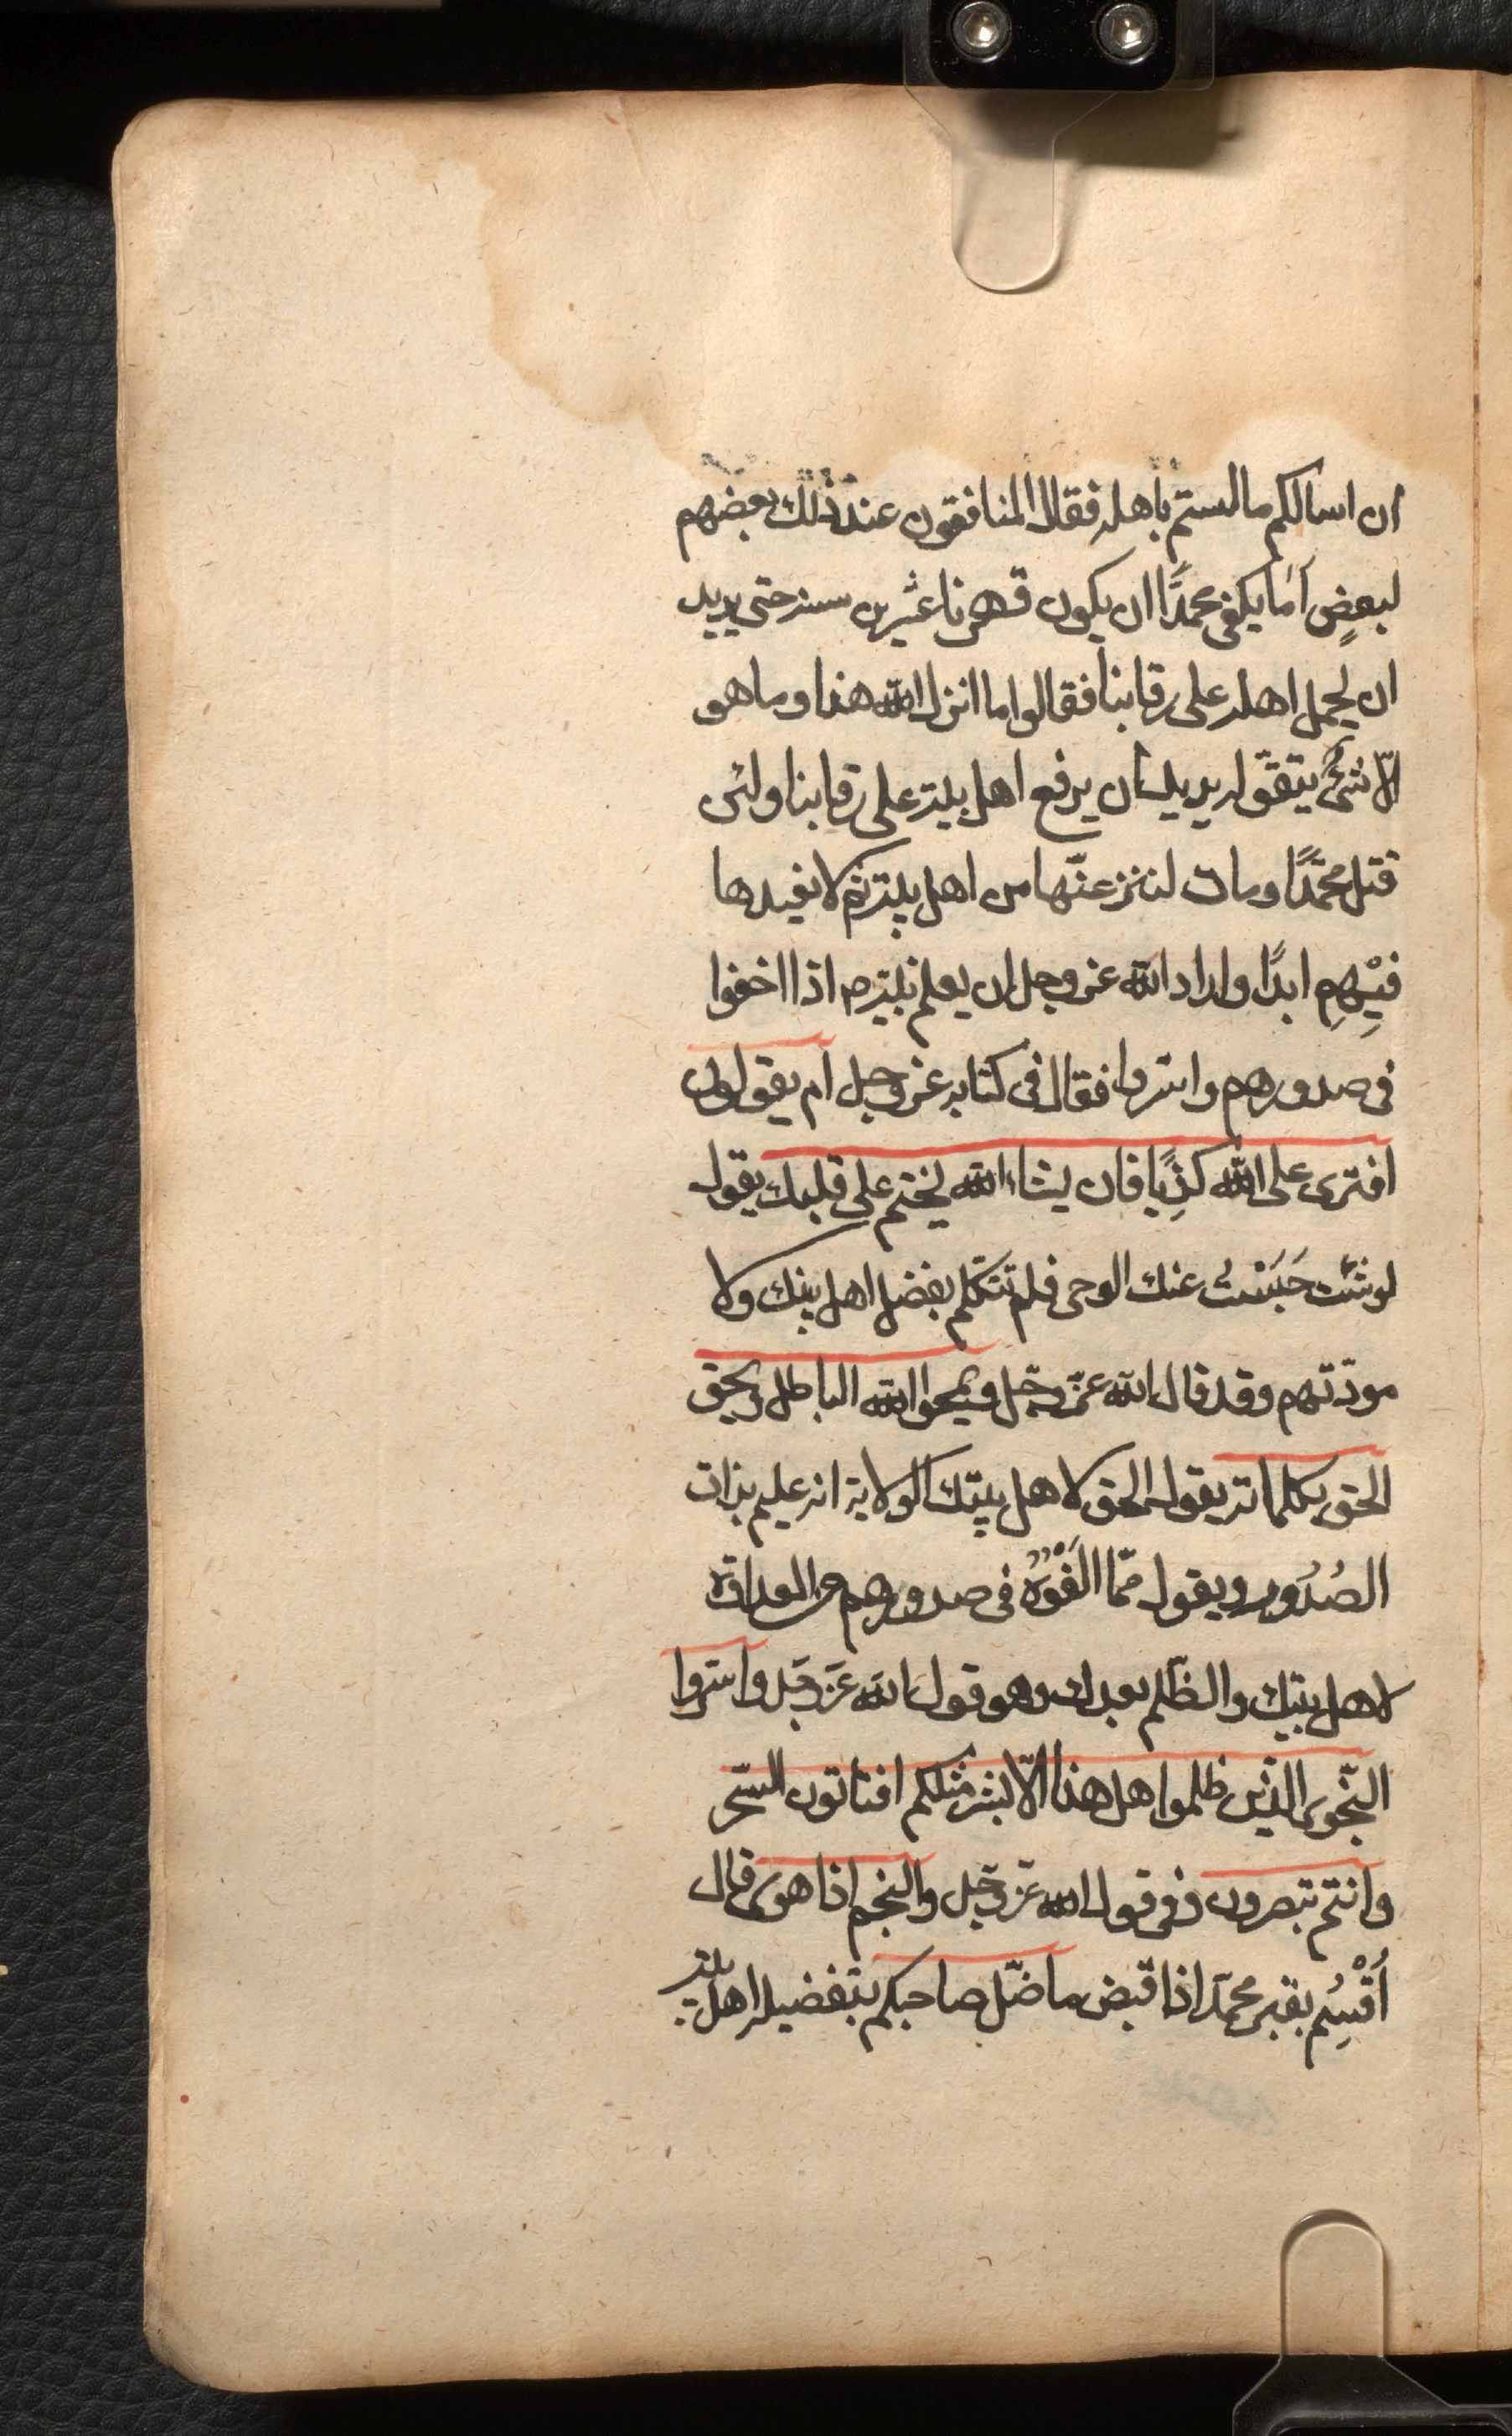 ان اسالكم ما لستم باهله فقال المنافقون عند ذلك بعضهم
لبعضٍ اَمَا يكفى محمدًا ان يكون قهرنا عشرين سنه حتى يريد
ان يحمل اهله على رقابنا فقالوا ما انزل الله هذا وما هو
الّا شئٌ يتقوّله يريد ان يرفع اهل بيته على رقابنا ولئن
قتل محمّدًا ومات لننزعنّها من اهل بيته ثم لا نعيدها
فيْهِمِ ابدًا واراد الله عز وجل ان يعلم نبيّه ص اذا اخفوا
فى صدورهم واسروا فقال فى كتابه عز وجل ام يقولون
افترى على الله كذِبًا فان يشاء الله يختم على قلبك يقول
لو شئت حَبَسْت عنك الوحى فلم تتكلّم بفضل اهل بيتك ولا
مودّتهم وقد قال الله عزّ وجّل ويمحوا الله الباطل ويحق
الحق بكلماته يقول الحق لاهل بيتك الولاية انه عليم بذات
الصُدُور ويقول ممّا الفَوْهُ فى صدورهم من العداوة
لاهل بيتك والظلم بعدك وهو قول الله عَزّ وَجَل واسّروا
النّجوى الّذين ظلموا هل هذا الّا بشر مثلكم افتاتون السّحر
وانتم تبصرون وفى قول الله عزّ وجّل والنجم اذا هوى قال
اُقْسِم بقبر محمّد اذا قبض ما ضّل صاحبكم بتفضيله اهل بيته